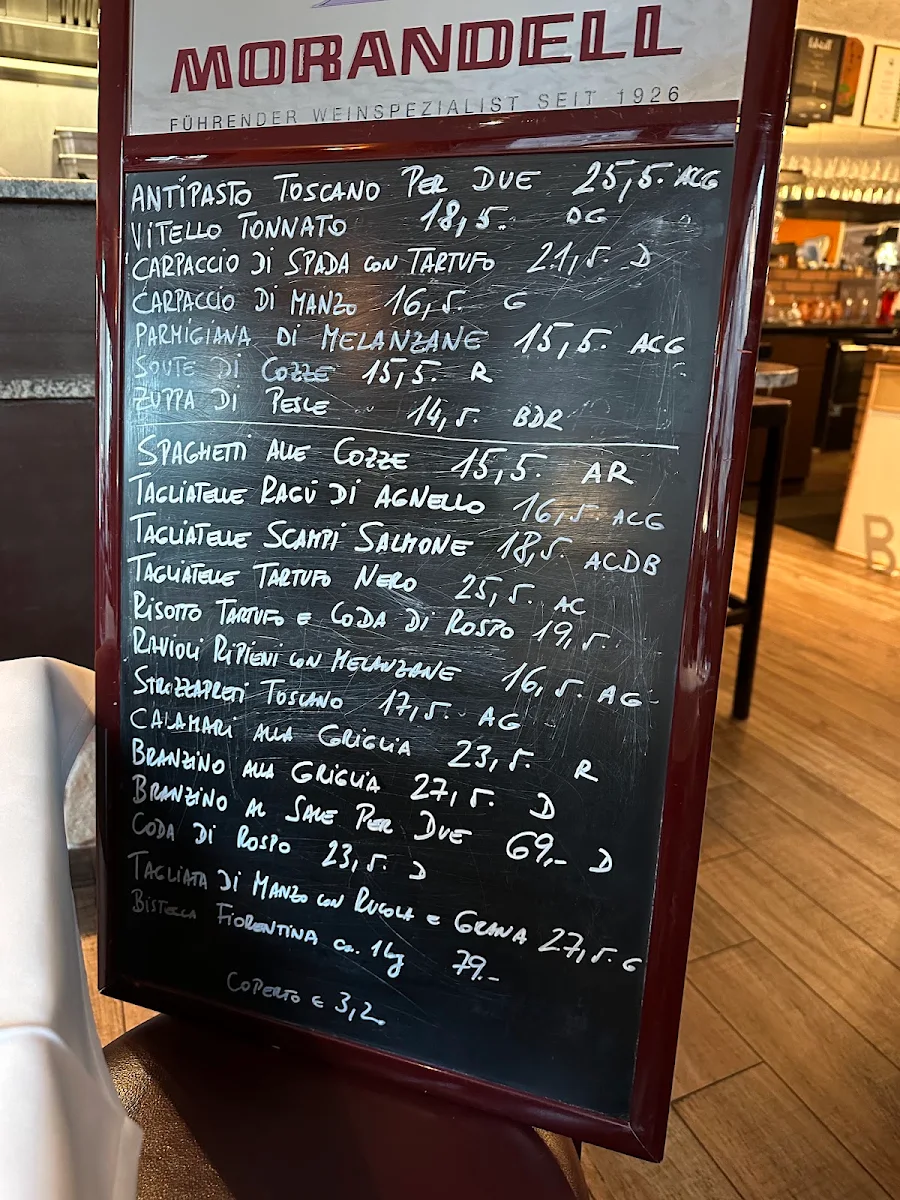 MORANDELL
FÜHRENDER WEINSPEZIALIST SEIT 1926
ANTIPASTO TOSCANO PER DUE 25,5. ACG
VITELLO TONNATO 18,5. DG
CARPACCIO DI SPADA CON TARTUFO 21,5. D
CARPACCIO DI MANZO 16,5. G
PARMIGIANA DI MELANZANE 15,5. ACG
SOUTE DI COZZE 15,5. R
ZUPPA DI PESCE 14,5. BDR
SPAGHETTI ALLE COZZE 15,5. AR
TAGLIATELLE RAGÚ DI AGNELLO 16,5. ACG
TAGLIATELLE SCAMPI SALMONE 18,5. ACDB
TAGLIATELLE TARTUFO NERO 25,5. AC
RISOTTO TARTUFO E CODA DI ROSPO 19,5.
RAVIOLI RIPIENI CON MELANZANE 16,5. AG
STROZZAPRETI TOSCANO 17,5. AG
CALAMARI ALLA GRIGLIA 23,5. R
BRANZINO ALLA GRIGLIA 27,5. D
BRANZINO AL SALE PER DUE 69,- D
CODA DI ROSPO 23,5. D
TAGLIATA DI MANZO CON RUCOLA E GRANA 27,5. G
BISTECCA FIORENTINA ca. 1kg 79.-
COPERTO E 3,2
B